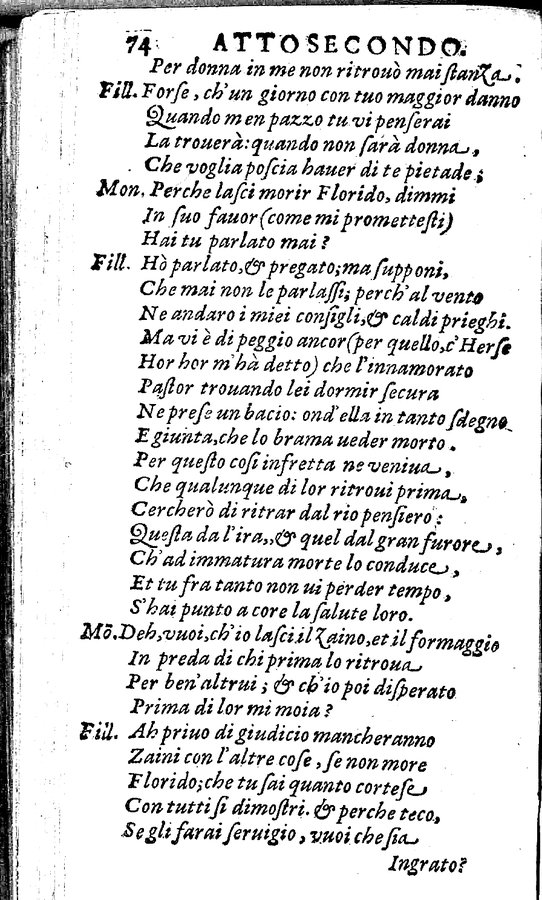 74 ATTO SECONDO.
Per donna in me non ritrouò mai stanza.
Fill. Forse, ch'un giorno con tuo maggior danno
Quando men pazzo tu vi penserai
La trouerà: quando non sarà donna,
Che voglia poscia hauer di te pietade;
Mon. Perche lasci morir Florido, dimmi
In suo fauor (come mi promettesti)
Hai tu parlato mai?
Fill. Hò parlato, & pregato; ma supponi,
Che mai non le parlassi; perch'al vento
Ne andaro i miei consigli, & caldi prieghi.
Ma vi è di peggio ancor (per quello, c'Herse
Hor hor m'hà detto) che l'innamorato
Pastor trouando lei dormir secura
Ne prese un bacio: ond'ella in tanto sdegno
E giunta, che lo brama ueder morto.
Per questo cosi infretta ne veniua,
Che qualunque di lor ritroui prima,
Cercherò di ritrar dal rio pensiero:
Questa da l'ira, & quel dal gran furore,
Ch'ad immatura morte lo conduce,
Et tu fra tanto non ui perder tempo,
S'hai punto a core la salute loro.
Mõ. Deh, vuoi, ch'io lasci il Zaino, et il formaggio
In preda di chi prima lo ritroua
Per ben'altrui; & ch'io poi disperato
Prima di lor mi moia?
Fill. Ah priuo di giudicio mancheranno
Zaini con l'altre cose, se non more
Florido; che tu sai quanto cortese
Con tutti si dimostri. & perche teco,
Se gli farai seruigio, vuoi che sia
Ingrato?